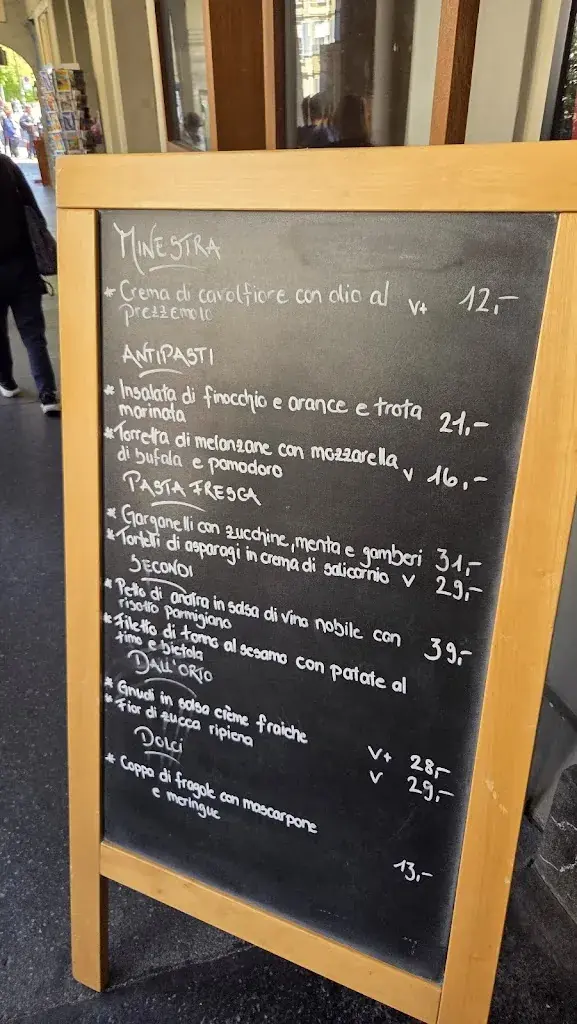 MINESTRA
* Crema di cavolfiore con olio al V+ 12,-
prezzemolo
ANTIPASTI
* Insalata di finocchio e arance e trota 21,-
marinata
* Torretta di melanzane con mozzarella V 16,-
di bufala e pomodoro
PASTA FRESCA
* Garganelli con zucchine, menta e gamberi 31,-
* Tortelli di asparagi in crema di salicornio V 29,-
SECONDI
* Petto di anatra in salsa di vino nobile con 39,-
risotto parmigiano
* Filetto di tonno al sesamo con patate al
timo e bietola
DALL'ORTO
* Gnudi in salsa crème fraiche V+ 28,-
* Fior di zucca ripiena V 29,-
DOLCI
* Coppa di fragole con mascarpone
e meringue 13,-